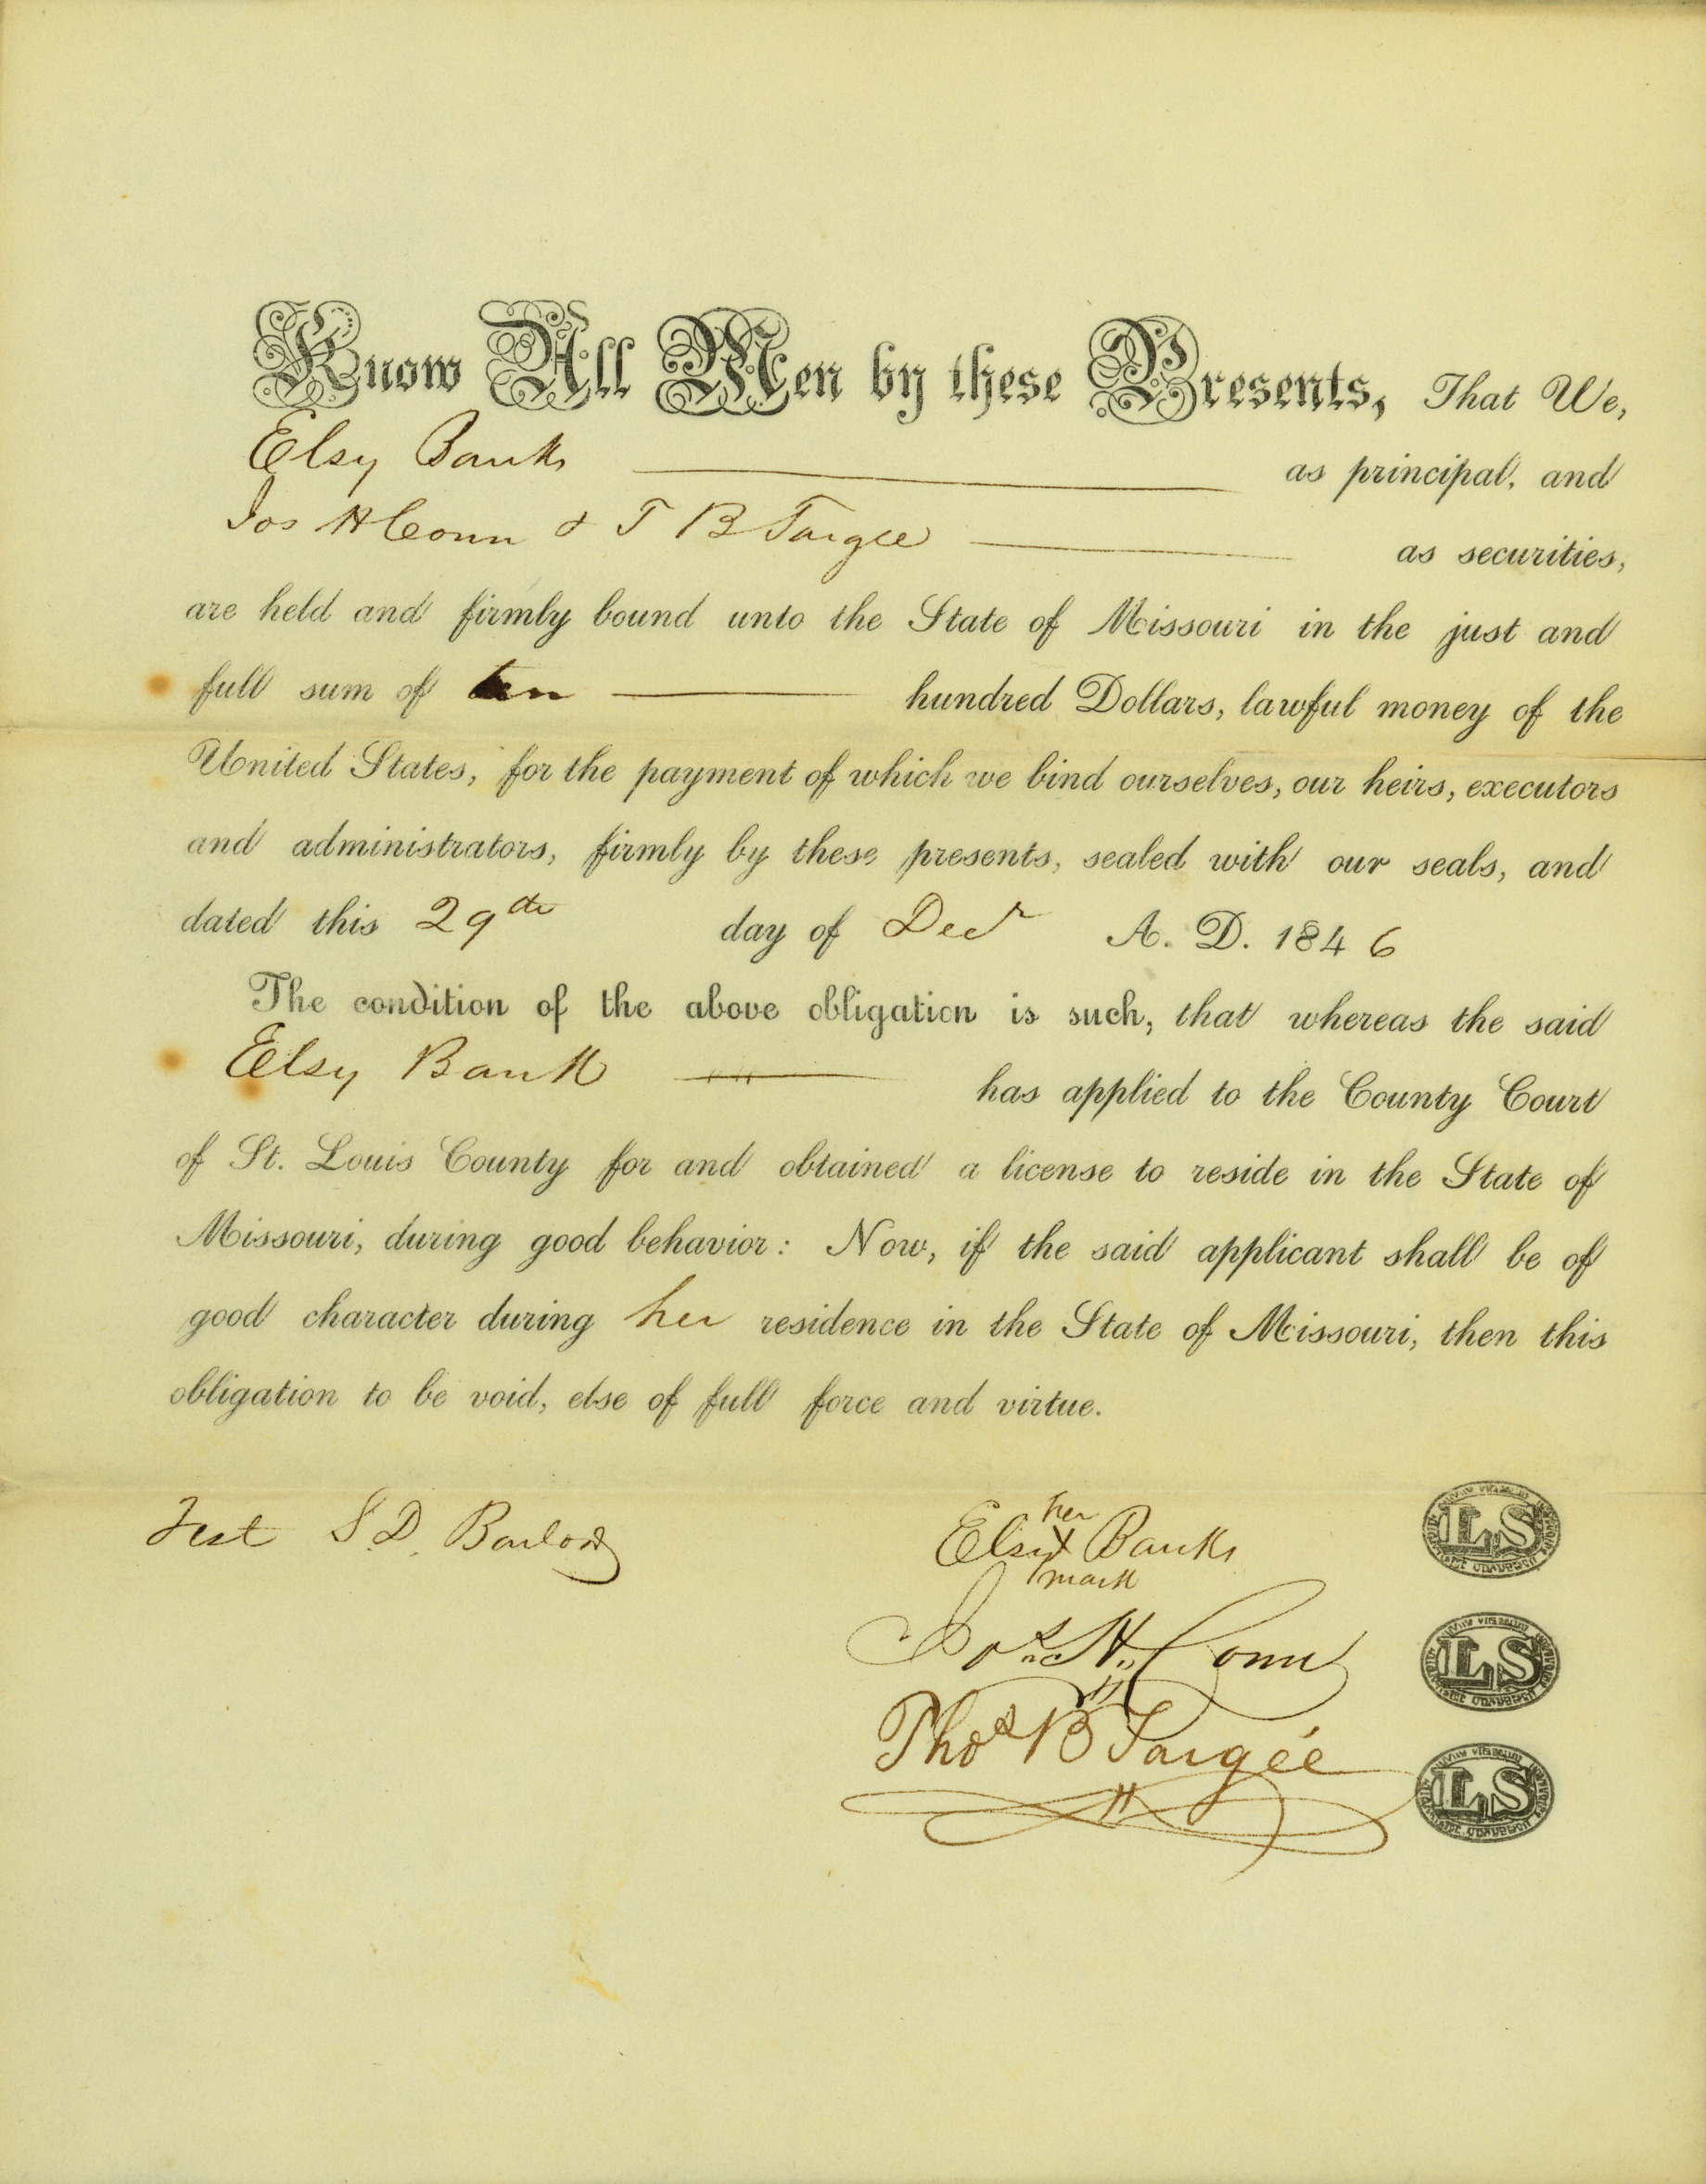 Know All Men by these Presents, That We,
Elsy Banks as principal, and
Jos H Conn & T B Targee as securities,
are held and firmly bound unto the State of Missouri in the just and
full sum of ten hundred Dollars, lawful money of the
United States, for the payment of which we bind ourselves, our heirs, executors
and administrators, firmly by these presents, sealed with our seals, and
dated this 29th day of Decr A. D. 1846
The condition of the above obligation is such, that whereas the said
Elsy Banks has applied to the County Court
of St. Louis County for and obtained a license to reside in the State of
Missouri, during good behavior: Now, if the said applicant shall be of
good character during her residence in the State of Missouri, then this
obligation to be void, else of full force and virtue.
Test S. D. Barlow
her
Elsy X Banks LS
mark
Jos H. Conn LS
Thos B Targée LS